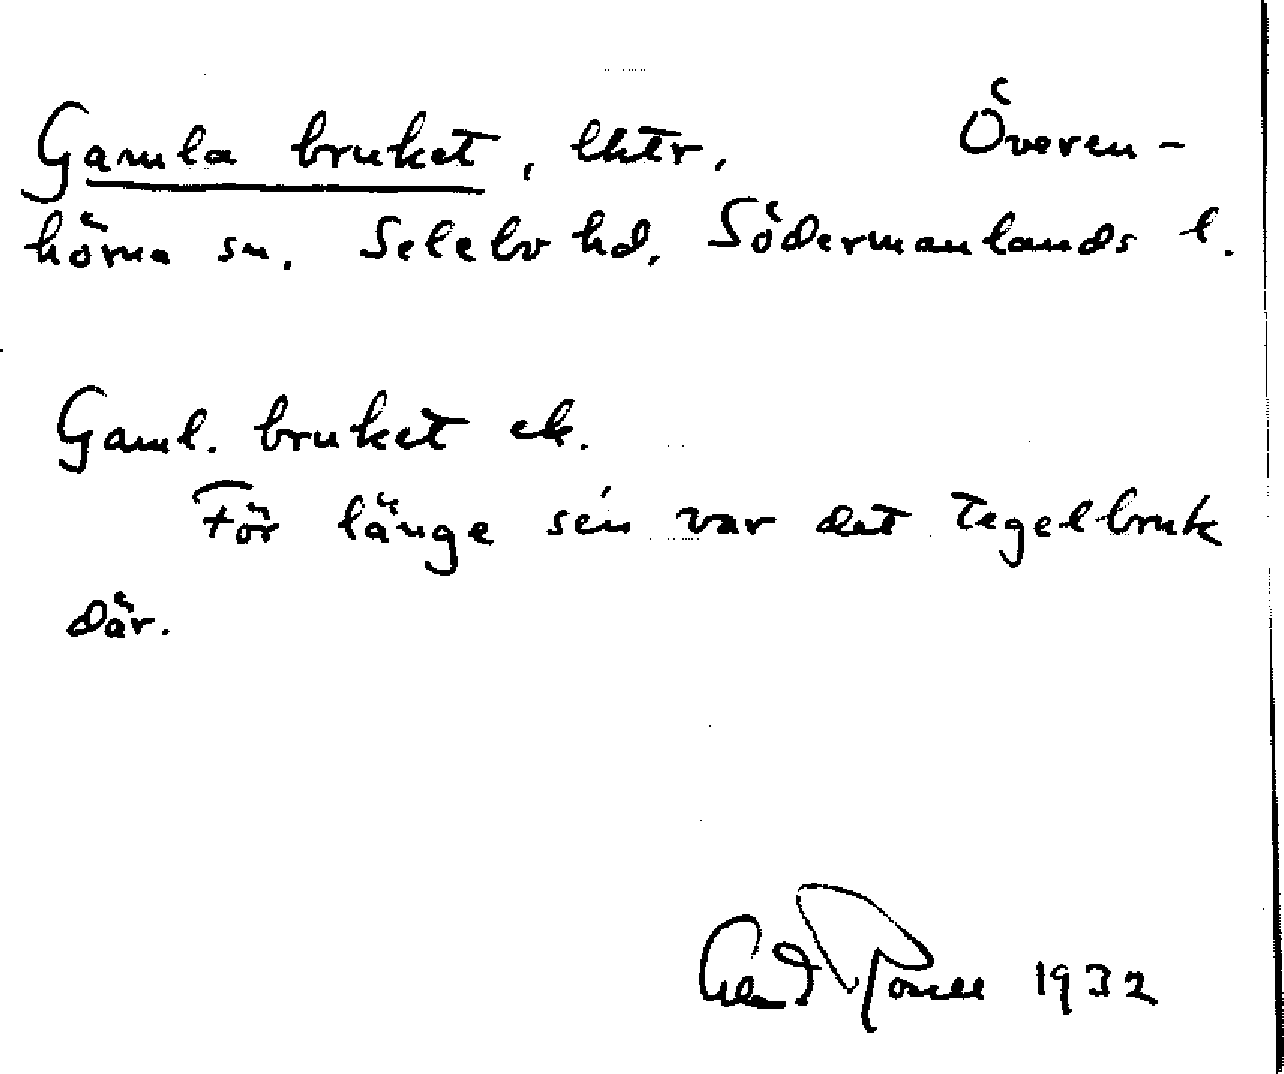 Gamla bruket, lktr. Överen-
hörna sn. Selebo hd. Södermanlands l.
Gaml. bruket ek.
För länge sén var det tegelbruk
där.
1932